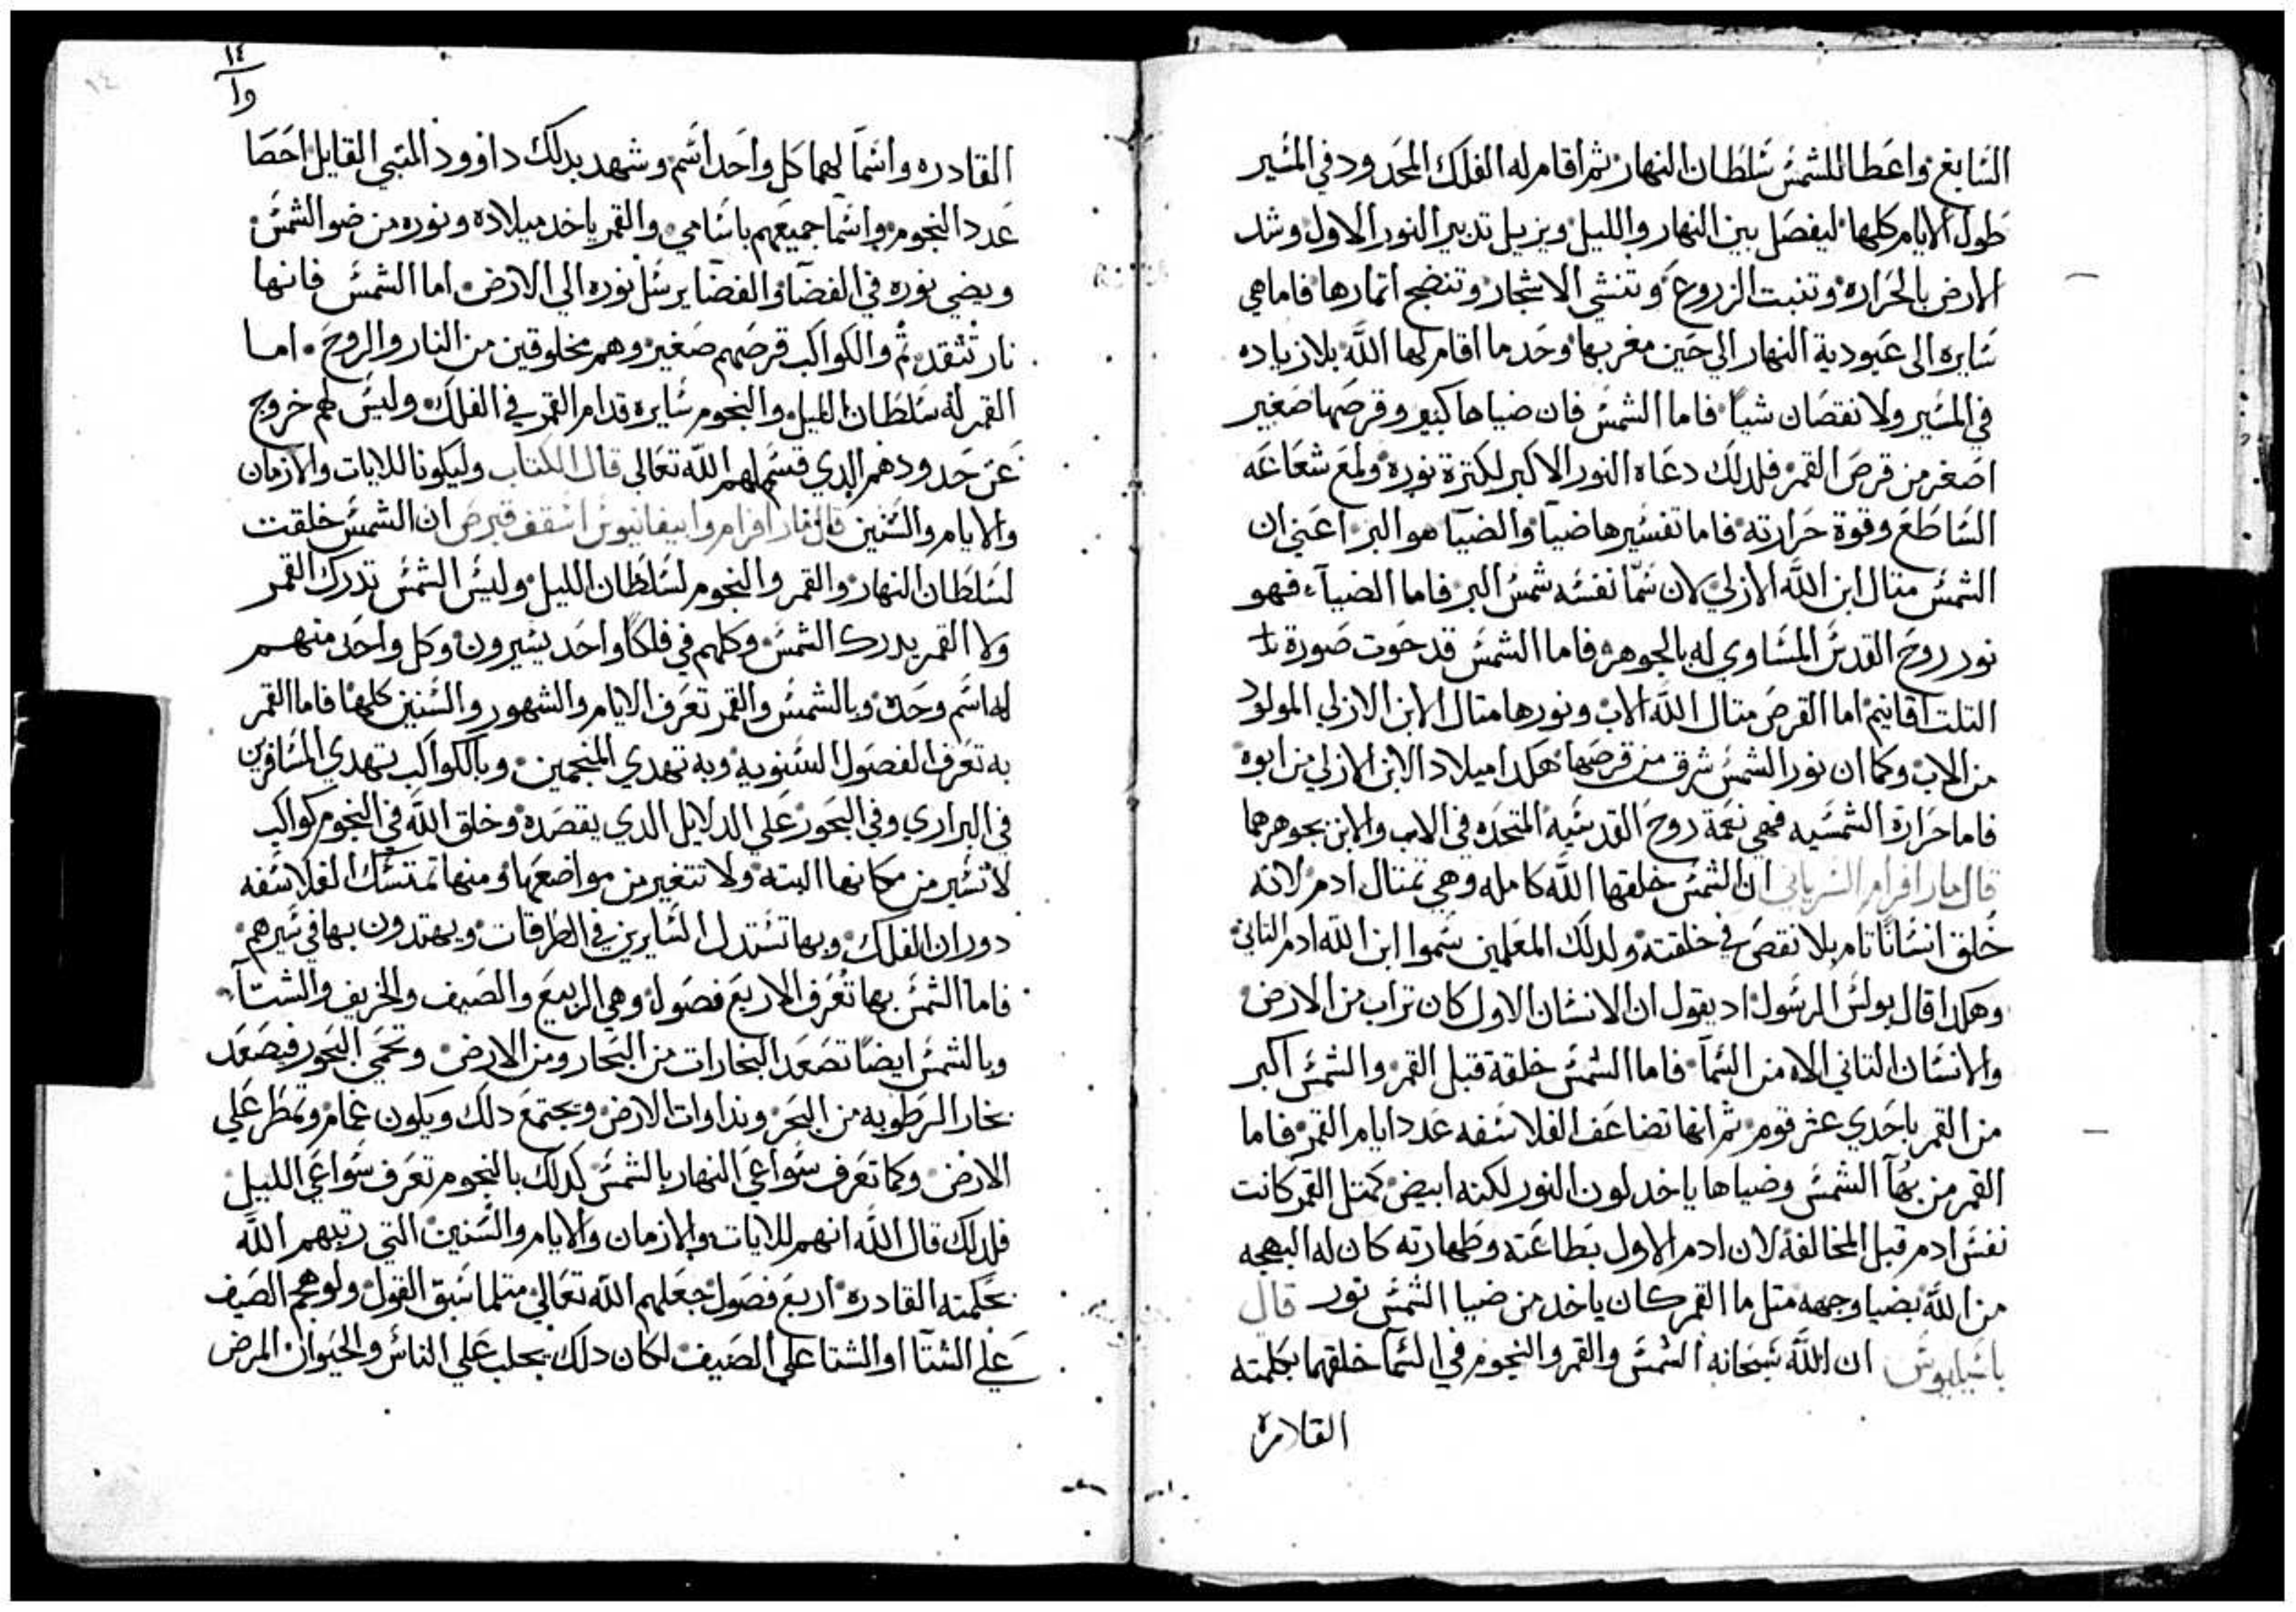 السابغ واعطا للشمس سلطان النهار ثم اقام له الفلك المحدود في المسير
طول الايام كلها ليفصل بين النهار والليل ويزيل تدبير النور الاول وشد
الارض بالحراره وتنبت الزروع وتنشي الاشجار وتنضج اتمارها فاما هي
سايره الى عبودية النهار الي حين مغربها وحد ما اقام لها الله بلا زياده
في المسير ولا نقصان شيا فاما الشمس فان ضياها كبير وقرصها صغير
اصغر من قرص القمر فلدلك دعاه النور الاكبر لكترة نوره ولمع شعاعه
الساطع وقوة حرارته فاما تفسيرها ضيا والضيا هو البر اعني ان
الشمس متال ابن الله الازلي لان سما نفسه شمس البر فاما الضياء فهو
نور روح القدس المساوي له بالجوهر فاما الشمس قد حوت صورة
التلت اقانيم اما القرص متال الله الاب ونورها متال الابن الازلي المولود
من الاب وكما ان نور الشمس شرق من قرصها هكدا ميلاد الابن الازلي من ابوه
فاما حرارة الشمسيه فهي نعمة روح القدسيه المتحده في الاب والابن بجوهرهما
قال مار افرام السرياني ان الشمس خلقها الله كامله وهي تمتال ادم لانه
خلق انسانا تام بلا نقص في خلقته ولدلك المعلمين سموا ابن الله ادم التاني
وهكدا قال بولس الرسول اد يقول ان الانسان الاول كان تراب من الارض
والانسان التاني الاه من السما فاما الشمس خلقة قبل القمر والشمس اكبر
من القمر باحدي عشر قوم ثم انها تضاعف الفلاسفه عدد ايام القمر فاما
القمر من بهآ الشمس وضياها ياخد لون النور لكنه ابيض كمتل القمر كانت
نفس ادم قبل المخالفة لان ادم الاول بطاعته وطهارته كان له البهجه
من الله بضيا وجهه متل ما القمر كان ياخد من ضيا الشمس نور قال
باسيليوس ان الله سبحانه الشمس والقمر والنجوم في السما خلقهما بكلمته
القادره
١٤
وا
القادره واسما لهما كل واحد اسم وشهد بدلك داوود النبي القايل احصا
عدد النجوم واسما جميعهم باسامي والقمر ياخد ميلاده ونوره من ضو الشمس
ويضي نوره في الفضا والفضا يرسل نوره الي الارض اما الشمس فانها
نار تتقد ثم والكواكب قرصهم صغير وهم مخلوقين من النار والروح اما
القمر له سلطان الليل والنجوم سايره قدام القمر في الفلك وليس لهم خروج
عن حدودهم الدي قسم لهم الله تعالى قال الكتاب وليكونا للايات والازمان
والايام والسنين قال مار افرام وابيفانيوس اسقف قبرص ان الشمس خلقت
لسلطان النهار والقمر والنجوم لسلطان الليل وليس الشمس تدرك القمر
ولا القمر يدرك الشمس وكلهم في فلكا واحد يسيرون وكل واحد منهم
له اسم وحده وبالشمس والقمر تعرف الايام والشهور والسنين كلها فاما القمر
به تعرف الفصول السنويه وبه تهدي المنجمين وبالكواكب تهدي المسافرين
في البراري وفي البحور علي الدلايل الدي يقصده وخلق الله في النجوم كواكب
لا تسير من مكانها البته ولا تتغير من مواضعها ومنها تمتسك الفلاسفه
دوران الفلك وبها تستدل السايرين في الطرقات ويهتدون بها في سيرهم
فاما الشمس بها تعرف الاربع فصول وهي الربيع والصيف والخريف والشتآ
وبالشمس ايضا تصعد البخارات من البحار ومن الارض وتحمي البحور فيصعد
بخار الرطوبه من البحر ونداوات الارض ويجتمع دلك ويكون غمام وتمطر علي
الارض وكما تعرف سواعي النهار بالشمس كدلك بالنجوم تعرف سواعي الليل
فلدلك قال الله انهم للايات والازمان والايام والسنين التي رتبهم الله
بحكمته القادره اربع فصول جعلهم الله تعالي متلما سبق القول ولو هجم الصيف
علي الشتآ او الشتا علي الصيف لكان دلك يجلب علي الناس والحيوان المرض